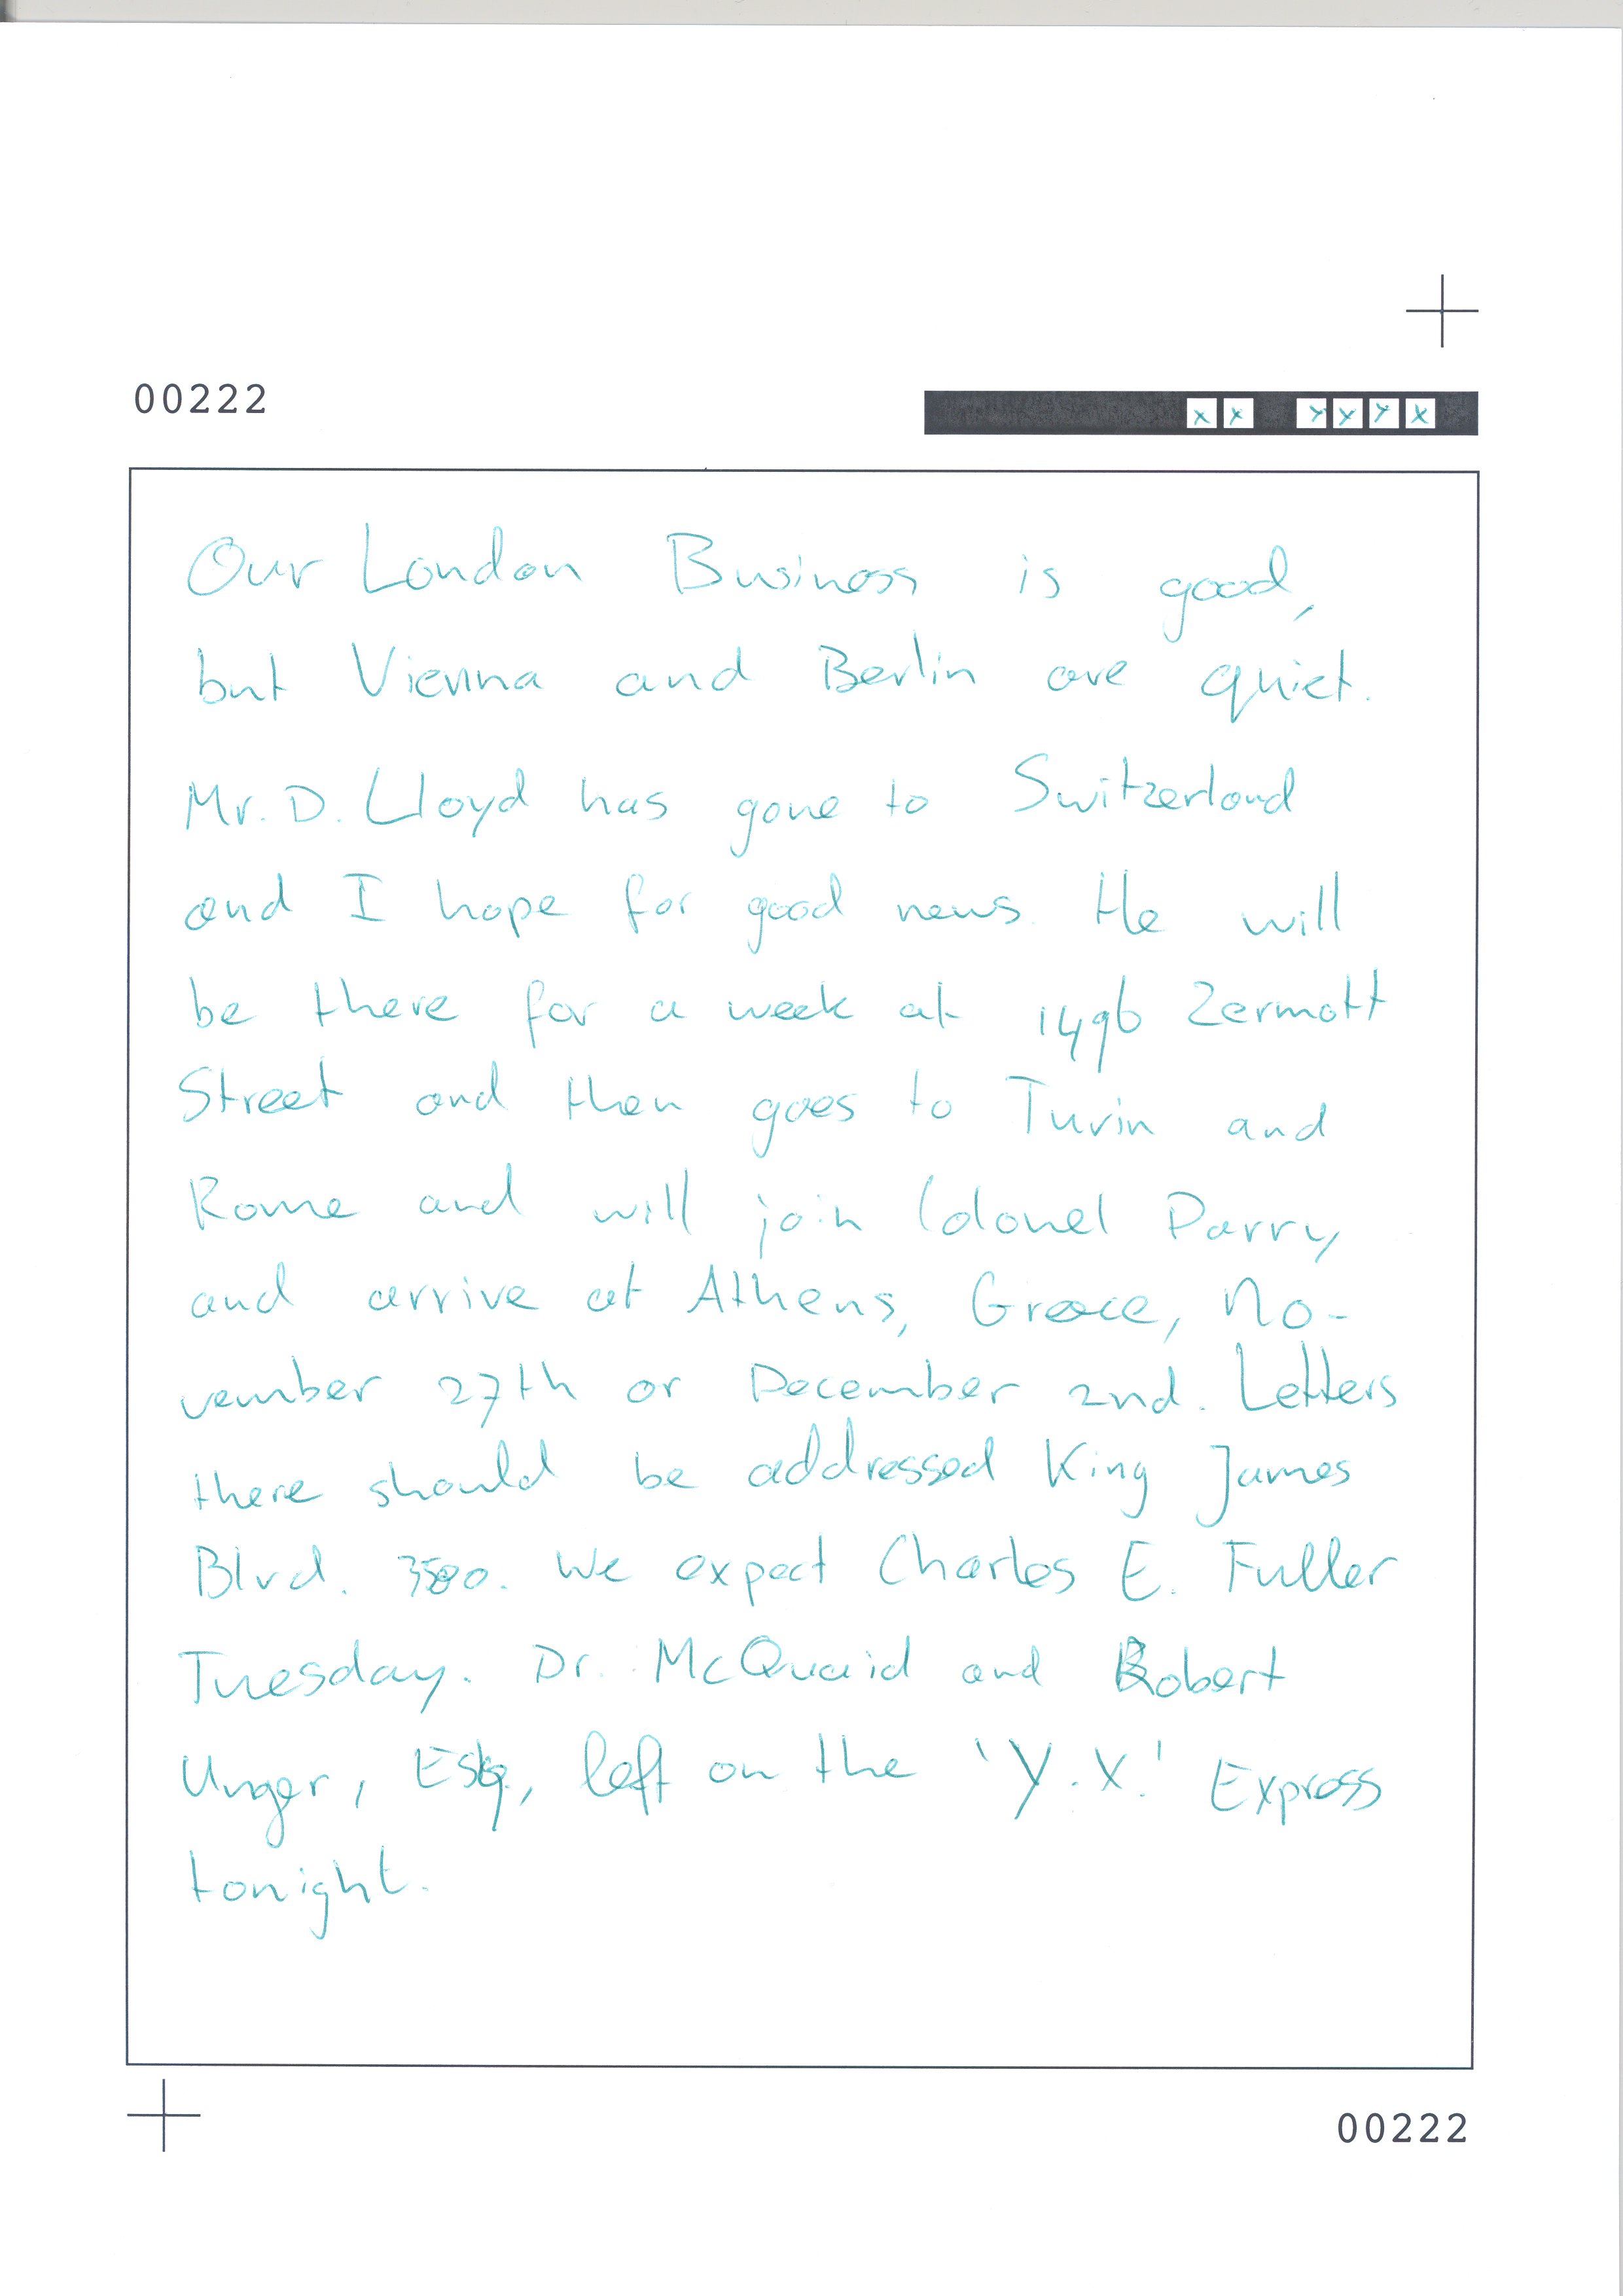 00222
x x y y y x
Our London Business is good,
but Vienna and Berlin are quiet.
Mr. D. Lloyd has gone to Switzerland
and I hope for good news. He will
be there for a week at 1496 Zermott
Street and then goes to Turin and
Rome and will join Colonel Parry
and arrive at Athens, Greece, No-
vember 27th or December 2nd. Letters
there should be addressed King James
Blvd. 3580. We expect Charles E. Fuller
Tuesday. Dr. McQuaid and Robert
Unger, Esq., left on the 'Y.X.' Express
tonight.
00222